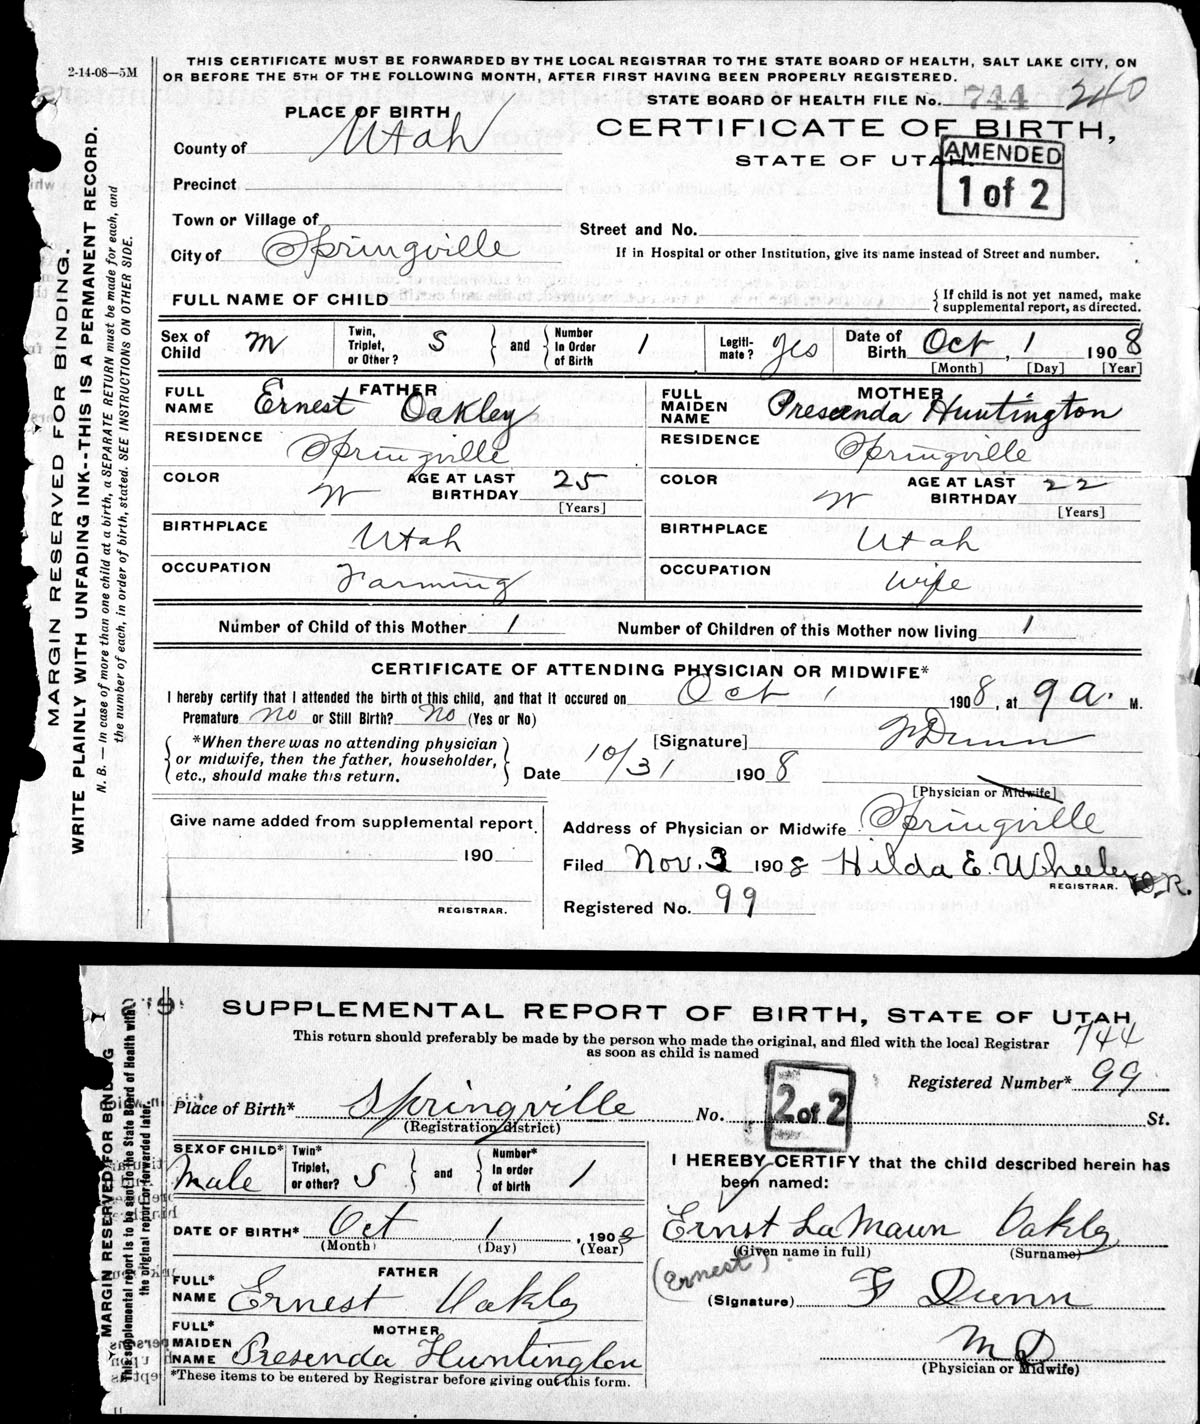 2-14-08—5M
THIS CERTIFICATE MUST BE FORWARDED BY THE LOCAL REGISTRAR TO THE STATE BOARD OF HEALTH, SALT LAKE CITY, ON
OR BEFORE THE 5TH OF THE FOLLOWING MONTH, AFTER FIRST HAVING BEEN PROPERLY REGISTERED.
STATE BOARD OF HEALTH FILE No. 744 240
PLACE OF BIRTH
CERTIFICATE OF BIRTH,
County of Utah
STATE OF UTAH.
AMENDED
1 of 2
Precinct
Town or Village of
Street and No.
City of Springville
If in Hospital or other Institution, give its name instead of Street and number.
FULL NAME OF CHILD
{ If child is not yet named, make
supplemental report, as directed.
Sex of Child M
Twin, Triplet, or Other? S } and { Number In Order of Birth 1
Legiti-mate? yes
Date of Birth Oct, 1 1908
[Month] [Day] [Year]
FATHER
FULL NAME Ernest Oakley
MOTHER
FULL MAIDEN NAME Presenda Huntington
RESIDENCE Springville
RESIDENCE Springville
COLOR W AGE AT LAST BIRTHDAY 25
[Years]
COLOR W AGE AT LAST BIRTHDAY 22
[Years]
BIRTHPLACE Utah
BIRTHPLACE Utah
OCCUPATION Farming
OCCUPATION Wife
Number of Child of this Mother 1 Number of Children of this Mother now living 1
CERTIFICATE OF ATTENDING PHYSICIAN OR MIDWIFE*
I hereby certify that I attended the birth of this child, and that it occured on Oct 1 1908, at 9 a. M.
Premature no or Still Birth? No (Yes or No)
{ *When there was no attending physician
or midwife, then the father, householder,
etc., should make this return. }
[Signature] F Dunn
Date 10/31 1908
[Physician or Midwife]
Give name added from supplemental report.
190
REGISTRAR.
Address of Physician or Midwife Springville
Filed Nov. 3 1908 Hilda E. Wheeler
REGISTRAR.
Registered No. 99
MARGIN RESERVED FOR BINDING.
WRITE PLAINLY WITH UNFADING INK--THIS IS A PERMANENT RECORD.
N. B. — In case of more than one child at a birth, a SEPARATE RETURN must be made for each, and
the number of each, in order of birth, stated. SEE INSTRUCTIONS ON OTHER SIDE.
SUPPLEMENTAL REPORT OF BIRTH, STATE OF UTAH
This return should preferably be made by the person who made the original, and filed with the local Registrar
as soon as child is named
744
Registered Number* 99
2 of 2
Place of Birth* Springville No. St.
(Registration district)
SEX OF CHILD* Male
Twin* Triplet, or other? S } and { Number* In order of birth 1
I HEREBY CERTIFY that the child described herein has
been named:
DATE OF BIRTH* Oct 1, 1908
(Month) (Day) (Year)
Ernst LaMaun Oakley
(Given name in full) (Surname)
(Ernest)
FATHER
FULL* NAME Ernest Oakley
(Signature) F Dunn
MOTHER
FULL* MAIDEN NAME Presenda Huntington
M D
(Physician or Midwife)
*These items to be entered by Registrar before giving out this form.
MARGIN RESERVED FOR BINDING
The supplemental report is to be sent to the State Board of Health with
the original report or forwarded later.